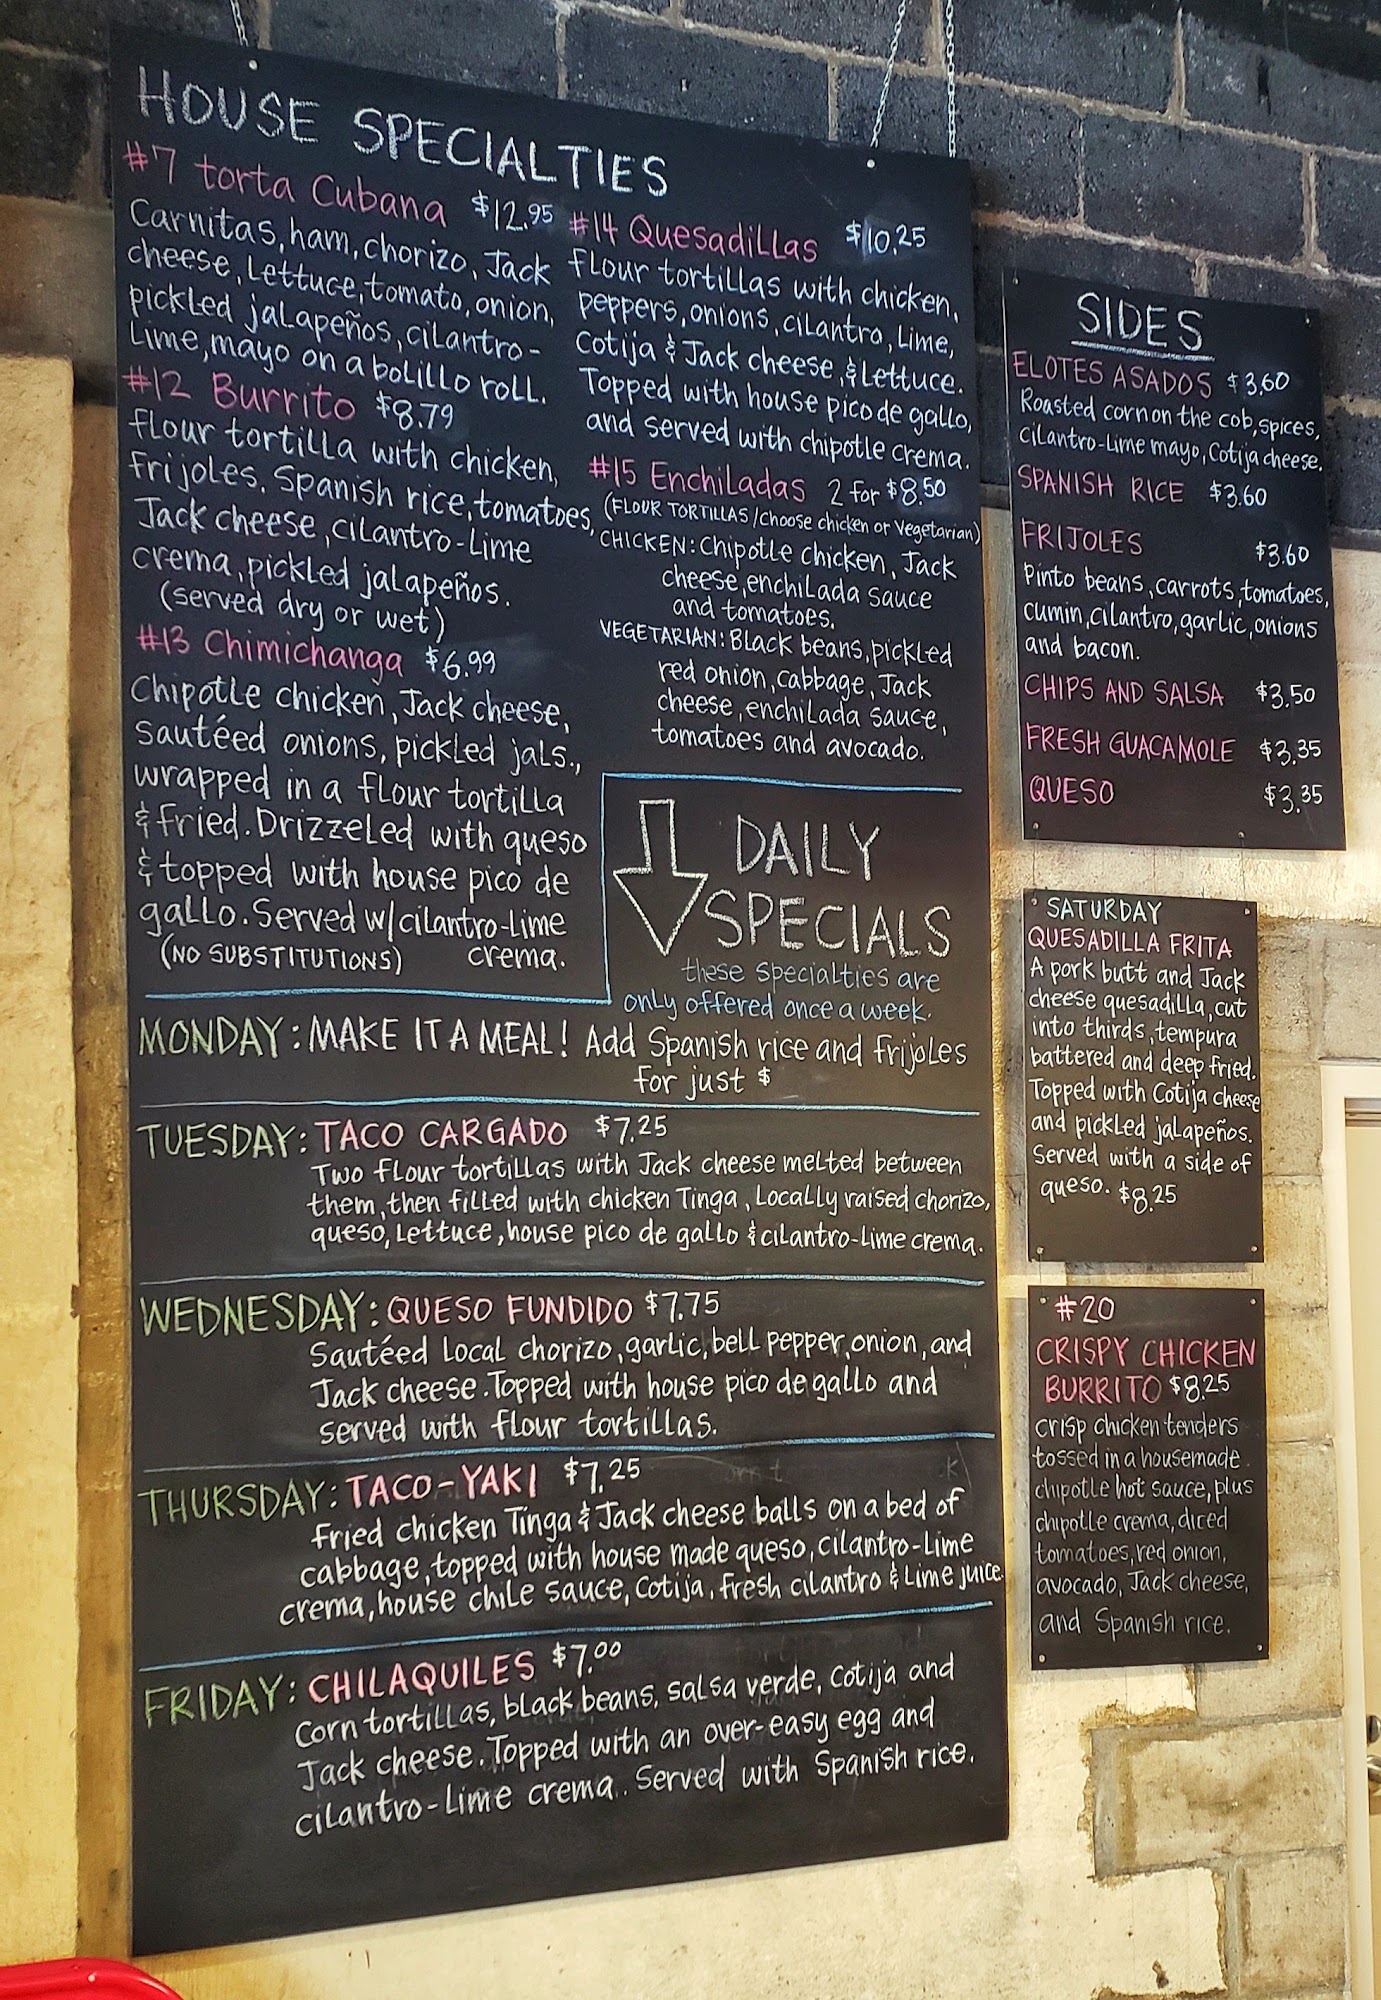 HOUSE SPECIALTIES
#7 torta Cubana $12.95
Carnitas, ham, chorizo, Jack
cheese, Lettuce, tomato, onion,
pickled jalapeños, cilantro-
Lime, mayo on a bolillo roll.
#12 Burrito $8.79
flour tortilla with chicken,
frijoles. Spanish rice, tomatoes,
Jack cheese, cilantro-Lime
crema, pickled jalapeños.
(served dry or wet)
#13 Chimichanga $6.99
Chipotle chicken, Jack cheese,
sautéed onions, pickled jals.,
wrapped in a flour tortilla
& fried. Drizzeled with queso
& topped with house pico de
gallo. Served w/cilantro-lime
(NO SUBSTITUTIONS) crema.
#14 Quesadillas $10.25
flour tortillas with chicken,
peppers, onions, cilantro, Lime,
Cotija & Jack cheese, & Lettuce.
Topped with house pico de gallo,
and served with chipotle crema.
#15 Enchiladas 2 for $8.50
(FLOUR TORTILLAS / choose chicken or Vegetarian)
CHICKEN: Chipotle chicken, Jack
cheese, enchilada sauce
and tomatoes.
VEGETARIAN: Black beans, pickled
red onion, cabbage, Jack
cheese, enchilada sauce,
tomatoes and avocado.
DAILY
SPECIALS
these specialties are
only offered once a week.
MONDAY: MAKE IT A MEAL! Add Spanish rice and frijoles
for just $
TUESDAY: TACO CARGADO $7.25
Two flour tortillas with Jack cheese melted between
them, then filled with chicken Tinga, Locally raised chorizo,
queso, Lettuce, house pico de gallo & cilantro-lime crema.
WEDNESDAY: QUESO FUNDIDO $7.75
Sautéed Local chorizo, garlic, bell pepper, onion, and
Jack cheese. Topped with house pico de gallo and
served with flour tortillas.
THURSDAY: TACO-YAKI $7.25
fried chicken Tinga & Jack cheese balls on a bed of
cabbage, topped with house made queso, cilantro-Lime
crema, house chile sauce, Cotija, fresh cilantro & Lime juice.
FRIDAY: CHILAQUILES $7.00
Corn tortillas, black beans, salsa verde, Cotija and
Jack cheese. Topped with an over-easy egg and
cilantro-Lime crema. Served with Spanish rice.
SIDES
ELOTES ASADOS $3.60
Roasted corn on the cob, spices,
cilantro-Lime mayo, Cotija cheese.
SPANISH RICE $3.60
FRIJOLES $3.60
Pinto beans, carrots, tomatoes,
cumin, cilantro, garlic, onions
and bacon.
CHIPS AND SALSA $3.50
FRESH GUACAMOLE $3.35
QUESO $3.35
SATURDAY
QUESADILLA FRITA
A pork butt and Jack
cheese quesadilla, cut
into thirds, tempura
battered and deep fried.
Topped with Cotija cheese
and pickled jalapeños.
Served with a side of
queso. $8.25
#20
CRISPY CHICKEN
BURRITO $8.25
crisp chicken tenders
tossed in a housemade
chipotle hot sauce, plus
chipotle crema, diced
tomatoes, red onion,
avocado, Jack cheese,
and Spanish rice.